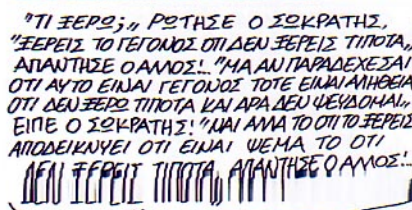 "ΤΙ ΞΕΡΩ;„ ΡΩΤΗΣΕ Ο ΣΩΚΡΑΤΗΣ,
"ΞΕΡΕΙΣ ΤΟ ΓΕΓΟΝΟΣ ΟΤΙ ΔΕΝ ΞΕΡΕΙΣ ΤΙΠΟΤΑ„
ΑΠΑΝΤΗΣΕ Ο ΑΛΛΟΣ!.. "ΜΑ ΑΝ ΠΑΡΑΔΕΧΕΣΑΙ
ΟΤΙ ΑΥΤΟ ΕΙΝΑΙ ΓΕΓΟΝΟΣ ΤΟΤΕ ΕΙΝΑΙ ΑΛΗΘΕΙΑ
ΟΤΙ ΔΕΝ ΞΕΡΩ ΤΙΠΟΤΑ ΚΑΙ ΑΡΑ ΔΕΝ ΨΕΥΔΟΜΑΙ„
ΕΙΠΕ Ο ΣΩΚΡΑΤΗΣ! "ΝΑΙ ΑΛΛΑ ΤΟ ΟΤΙ ΤΟ ΞΕΡΕΙΣ
ΑΠΟΔΕΙΚΝΥΕΙ ΟΤΙ ΕΙΝΑΙ ΨΕΜΑ ΤΟ ΟΤΙ
ΔΕΝ ΞΕΡΕΙΣ ΤΙΠΟΤΑ„ ΑΠΑΝΤΗΣΕ Ο ΑΛΛΟΣ!..